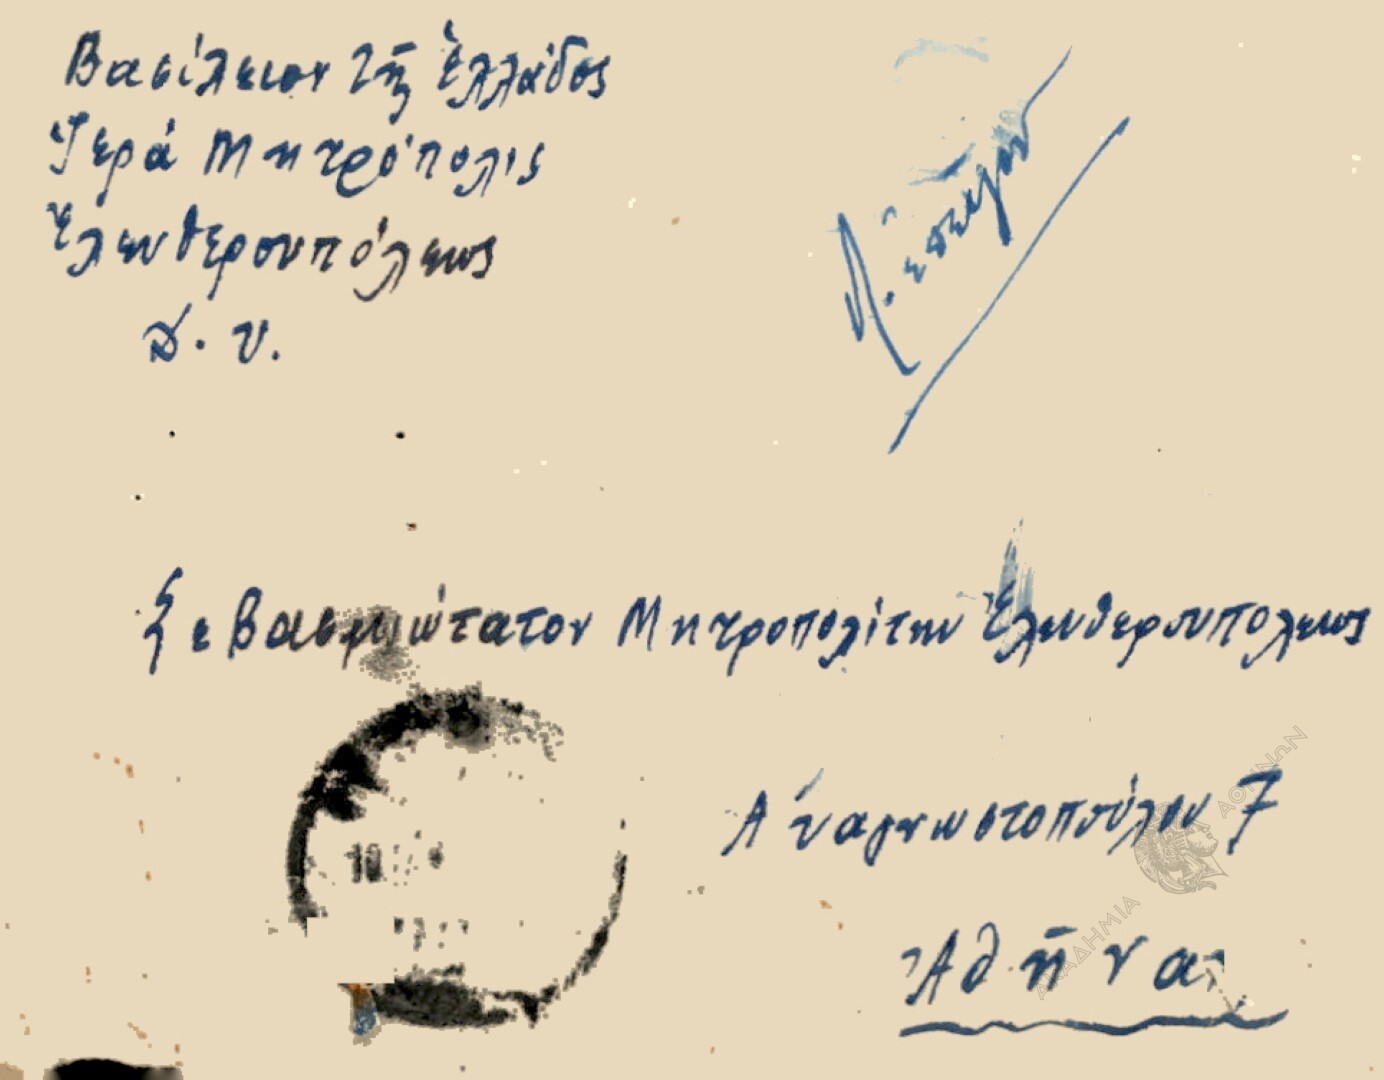 Βασίλειον τῆς Ἑλλάδος
Ἱερά Μητρόπολις
Ἐλευθερουπόλεως
Δ. Υ.
λ. ἐπείγον
Σεβασμιώτατον Μητροπολίτην Ἐλευθερουπόλεως
Ἀναγνωστοπούλου 7
Ἀθήνας
10
ΑΚΑΔΗΜΙΑ ΑΘΗΝΩΝ